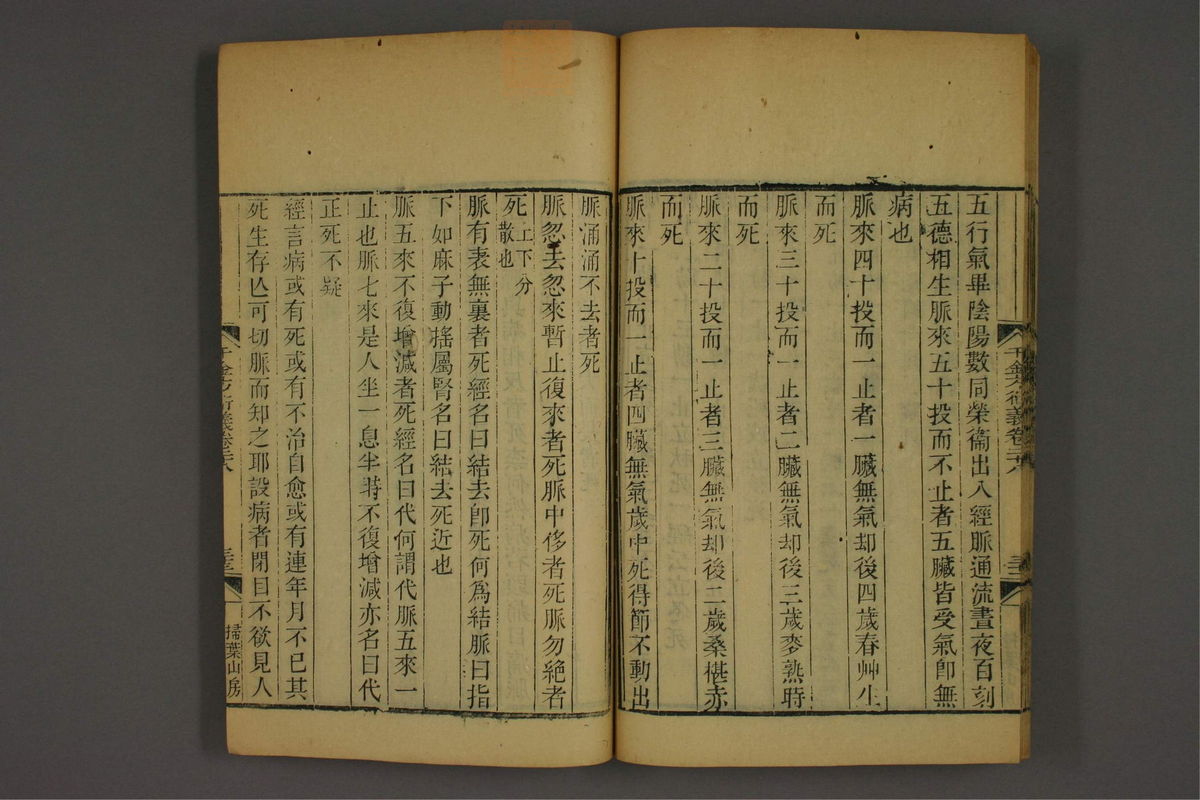 五行氣畢陰陽數同榮衞出入經脈通流晝夜百刻
五德相生脈來五十投而不止者五臟皆受氣卽無
病也
脈來四十投而一止者一臟無氣却後四歲春艸生
而死
脈來三十投而一止者二臟無氣却後三歲麥熟時
而死
脈來二十投而一止者三臟無氣却後二歲桑椹赤
而死
脈來十投而一止者四臟無氣歲中死得節不動出
脈涌涌不去者死
脈忽去忽來暫止復來者死脈中侈者死脈勿絶者
死上下分散也
脈有表無裏者死經名曰結去卽死何爲結脈曰指
下如麻子動搖屬腎名曰結去死近也
脈五來不復增減者死經名曰代何謂代脈五來一
止也脈七來是人坐一息半時不復增減亦名曰代
正死不疑
經言病或有死或有不治自愈或有連年月不已其
死生存亾可切脈而知之耶設病者閉目不欲見人
千金方衍義卷二十八
三三
掃葉山房